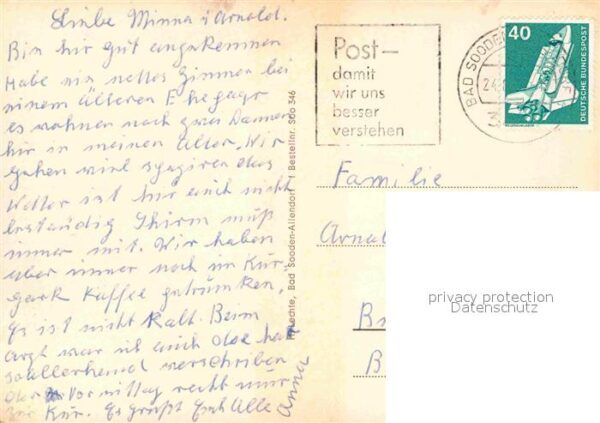 Liebe Minna u Arnold.
Bin hir gut angekommen
Habe ein nettes Zimmer bei
einem älteren Ehepaar
es wohnen noch zwei Damen
hir in meinen Alter. Wir
gehen viel das
Wetter ist hir auch nicht
beständig Schirm muß
immer mit. Wir haben
aber immer noch im Kur
park Kaffee getrunken,
Es ist nicht kalt. Beim
Arzt war ich auch der hat
verschrieben
der Vormittag reicht nur
zur Kur. Es grüßt Euch Alle
Anna
Lechte, Bad Sooden-Allendorf Bestellnr. Soo 346
Post –
damit
wir uns
besser
verstehen
BAD SOODEN
24
3
40
DEUTSCHE BUNDESPOST
Familie
Arnol
B
B
privacy protection
Datenschutz